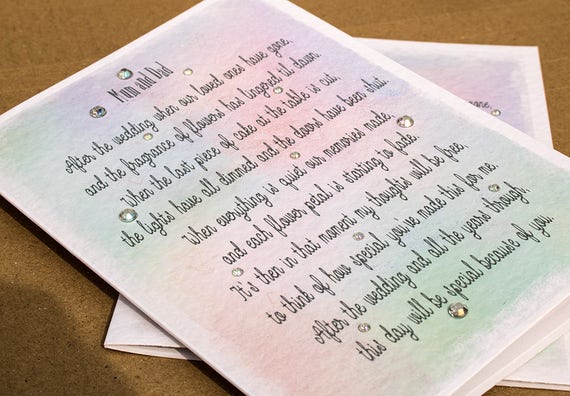 Mum and Dad
After the wedding when our loved ones have gone,
and the fragrance of flowers has lingered 'til dawn.
When the last piece of cake at the table is cut,
the lights have all dimmed and the doors have been shut.
When everything is quiet our memories made,
and each flower petal is starting to fade.
It's then in that moment my thoughts will be free,
to think of how special you've made this for me.
After the wedding and all the years though,
this day will be special because of you.
gone,